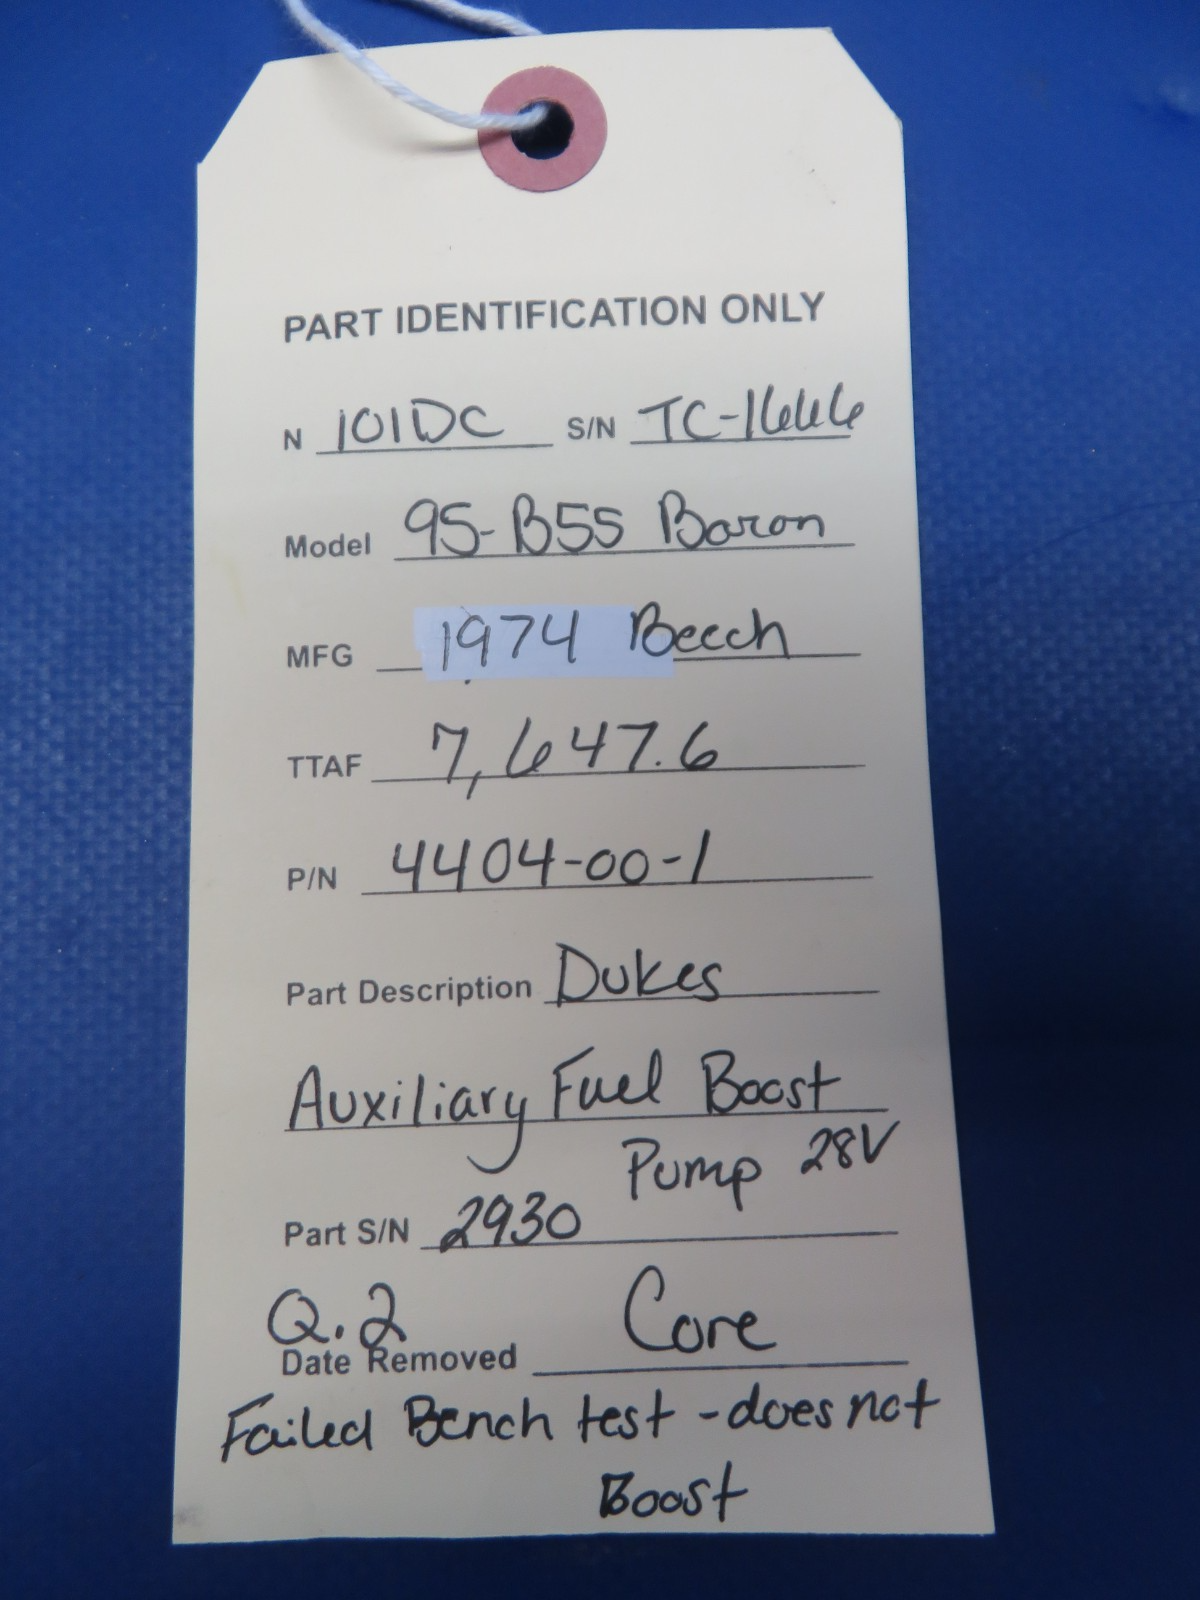 PART IDENTIFICATION ONLY
N 101DC S/N TC-1666
Model 95-B55 Baron
MFG 1974 Beech
TTAF 7,647.6
P/N 4404-00-1
Part Description Dukes
Auxiliary Fuel Boost
Pump 28V
Part S/N 2930
Q.2 Core
Date Removed
Failed Bench test - does not
Boost